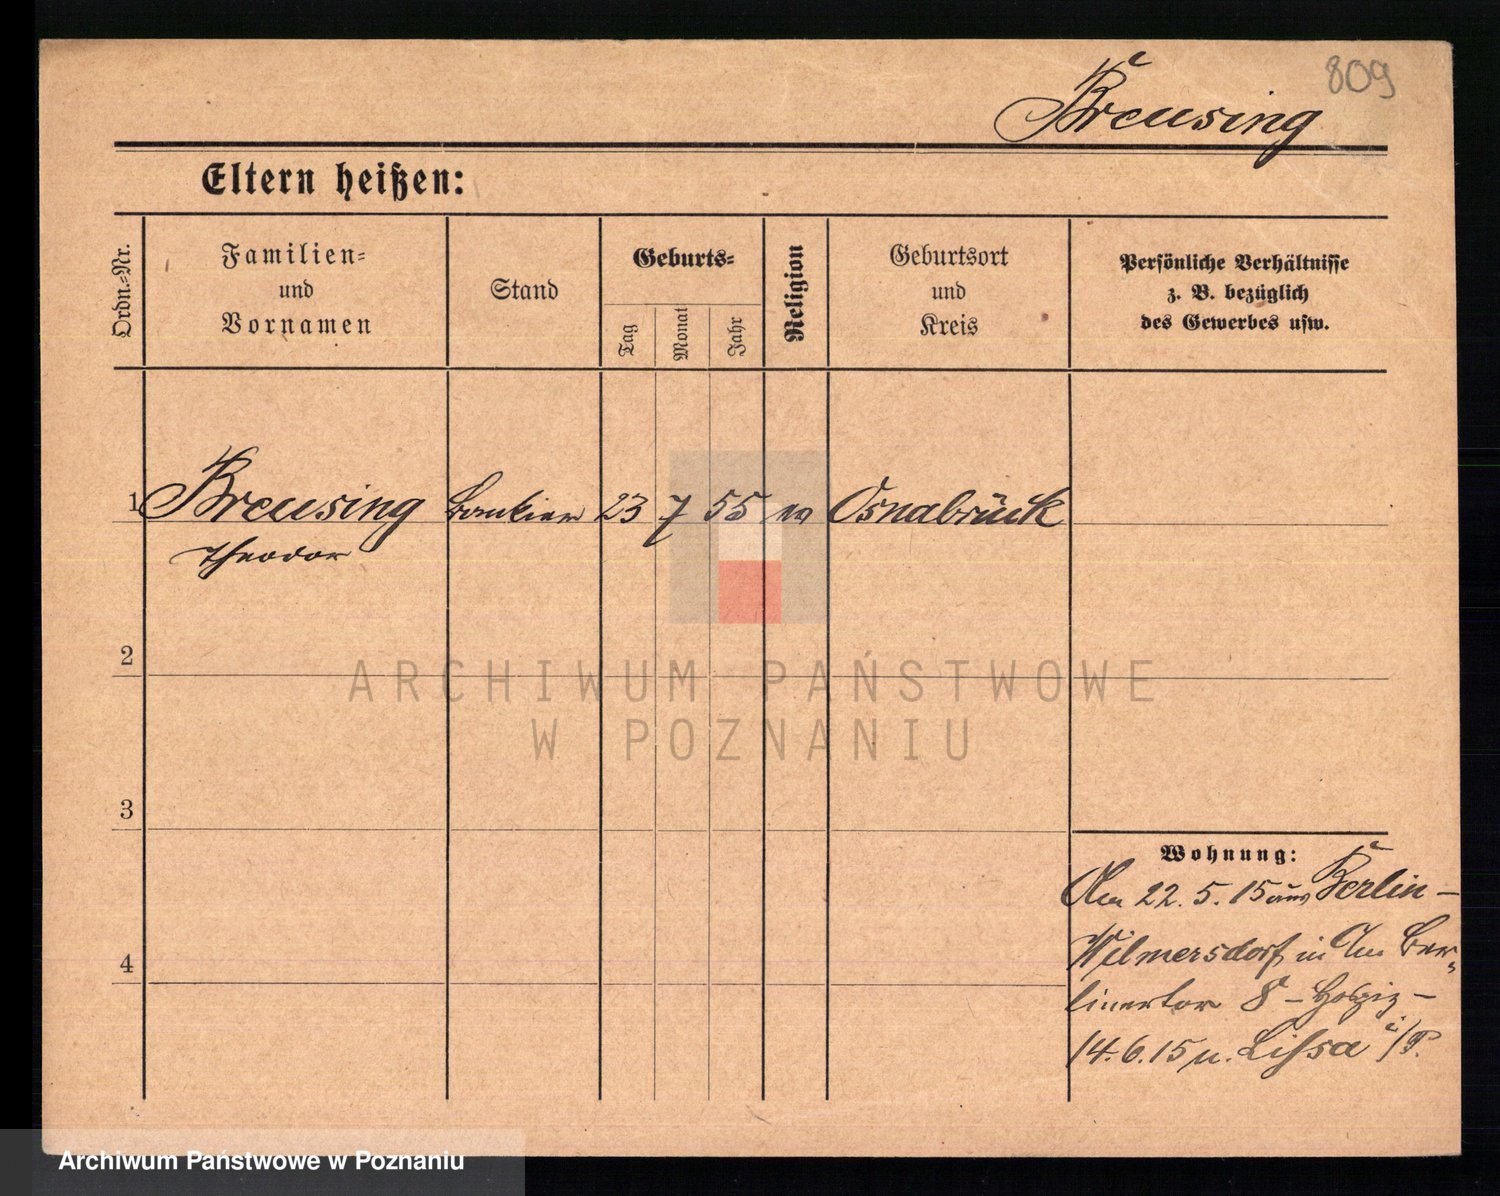 809
Breusing
Eltern heißen:
Ordn.-Nr.
Familien-
und
Vornamen
Stand
Geburts-
Tag
Monat
Jahr
Religion
Geburtsort
und
Kreis
Persönliche Verhältnisse
z. B. bezüglich
des Gewerbes usw.
1 Breusing Bankier 23 7 55 ev Osnabrück
Theodor
2
3
4
Wohnung:
Am 22. 5. 15 aus Berlin –
Wilmersdorf in Am Ber-
linertor 8 – Hospiz –
14.6.15 n. Lissa i/P.
ARCHIWUM PAŃSTWOWE
W POZNANIU
Archiwum Państwowe w Poznaniu